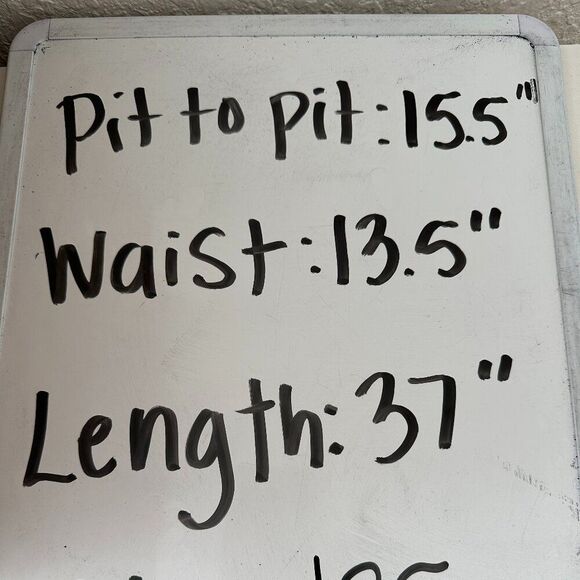 Pit to Pit: 15.5"
Waist: 13.5"
Length: 37"